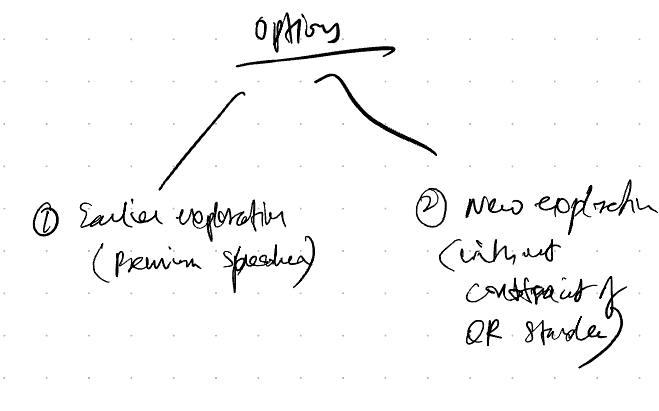 Options
① Earlier exploration
(Premium
② New exploration
(without
constraint of
QR